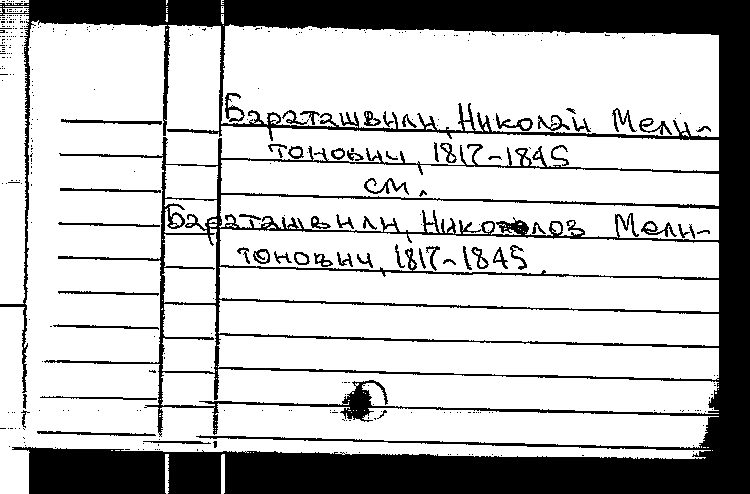 Бараташвили, Николай Мели-
тонович, 1817-1845
см.
Бараташвили, Николоз Мели-
тонович, 1817-1845.